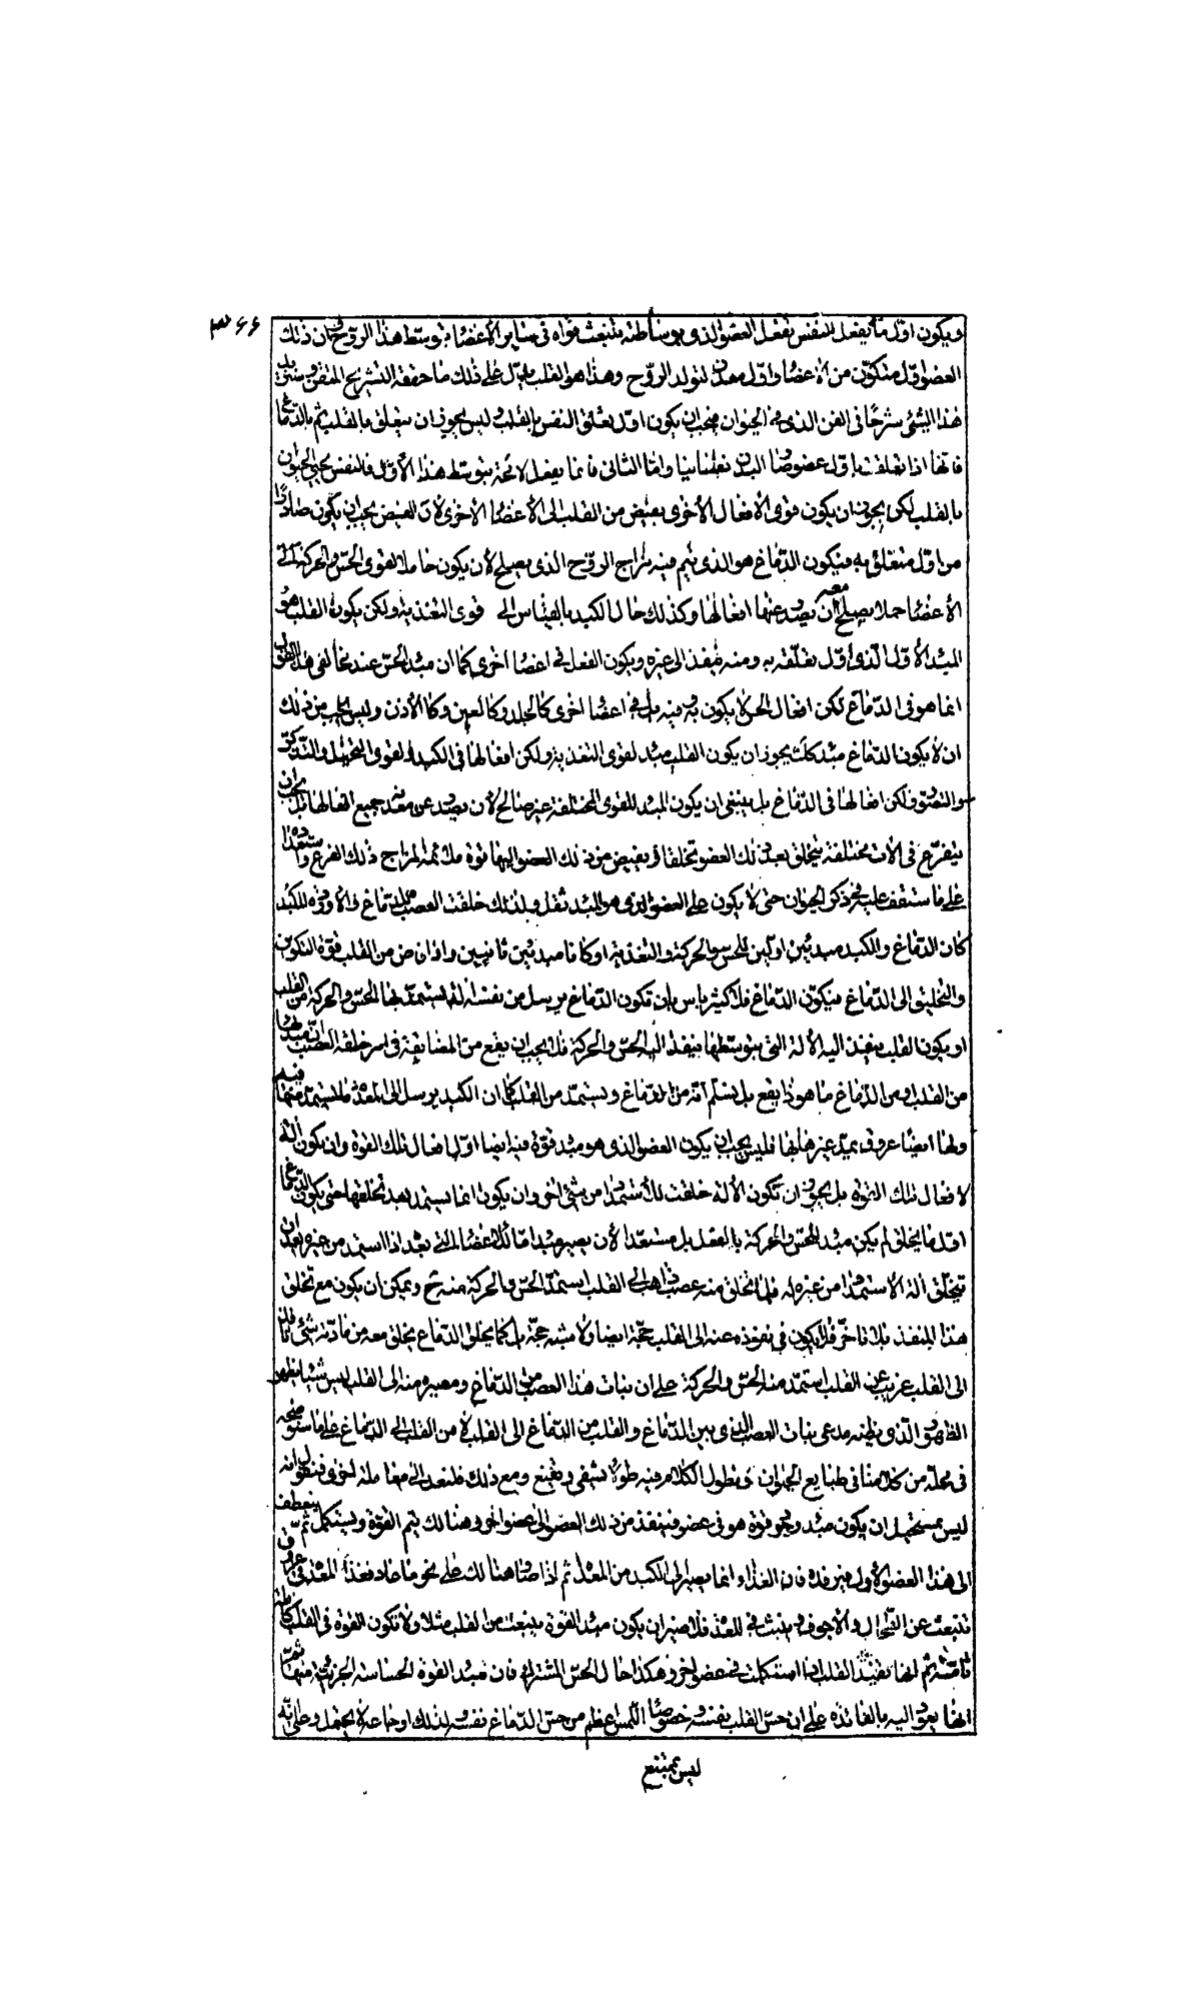 ٣٦٦
ويكون اول ما يفعل النفس يفعل العضو الذى بوساطته تنبعث قواه فى ساير الاعضا بتوسط هذا الروح وان ذلك
العضو اول متكون من الاعضا واول معدن لتولد الروح وهذا هو القلب يدل على ذلك ما حققه التشريح المتقن وسنزيد
هذا الشئ شرحا فى الفن الذى فى الحيوان فيجب ان يكون اول تعلق النفس بالقلب وليس يجوز ان يتعلق بالقلب ثم بالدماغ
فانها اذا تعلقت باول عضو صار البدن نفسانيا واما الثانى فانما يفعل لا محة بتوسط هذا الاول فالنفس يحيى الحيوان
بالقلب لكن يجوز ان يكون قوى الافعال الاخرى يفيض من القلب الى الاعضا الاخرى لان الفيض يجب ان يكون صادرا
من اول متعلق به فيكون الدماغ هو الذى يتم فيه مزاج الروح الذى يصلح لان يكون حاملا لقوى الحس والحركة الى
الاعضا حملا يصلح معه ان يصدر عنها افعالها وكذلك حال الكبد بالقياس الى قوى التغذية ولكن يكون القلب هو
المبدا الاول الذى اول تعلقه به ومنه ينفذ الى غيره ويكون الفعل فى اعضا اخرى كما ان مبدا الحس عند مخالفى هذا القول
انما هو فى الدماغ لكن افعال الحس لا يكون به وفيه بل فى اعضا اخرى كالجلد وكالعين وكالأذن وليس يجب من ذلك
ان لا يكون الدماغ مبدا كك يجوز ان يكون القلب مبدا لقوى التغذية ولكن افعالها فى الكبد ولقوى التخيل والتذكر
والتصور ولكن افعالها فى الدماغ بل ينبغى ان يكون المبدا للقوى المختلفة غير صالح لان يصدر عن معدنه جميع افعالها بل يجب ان
يتفرع فى الات مختلفة يتخلق بعد ذلك العضو تخلقا ويفيض من ذلك العضو اليها قوة ملائمة لمزاج ذلك الفرع واستعداده
على ما ستقف عليه فى ذكر الحيوان حتى لا يكون على العضو الذى هو المبدا ثقل ولذلك خلقت العصب للدماغ والاوردة للكبد
كان الدماغ والكبد مبدئين اولين للحس والحركة والتغذية او كانا مبدئين ثانيين واذا فاض من القلب قوة التكوين
والتخليق الى الدماغ فيكون الدماغ فلا كثير باس بان تكون الدماغ يرسل من نفسه آلة يستمد بها الحس والحركة من القلب
او يكون القلب ينفذ اليه الآلة التى بتوسطها ينفذ اليه الحس والحركة فلا يجب ان يقع من المضايقة فى امر خلقة العصب ان مبداها
من القلب او من الدماغ ما هو ذا يقع بل نسلم انه من الدماغ ويستمد من القلب كما ان الكبد يرسل الى المعدة ما يستمد منها فيه
ولها ايضا عروق يمد غيرها بها فليس يجب ان يكون العضو الذى هو مبدا قوة فيه ايضا اول افعال تلك القوة وان يكون آلة
لافعال تلك القوة بل يجوز ان تكون الآلة خلقت للاستمداد من شئ اخر وان يكون انما يستمد بعد تخلقها حتى يكون الدماغ
اول ما يخلق لم يكن مبدا للحس والحركة بالفعل بل مستعدا لان يصير مبدا ما للاعضا التى بعده اذا استمد من غيره بعد ان
يتخلق آلة الاستمداد من غيره له فلما تخلق منه عصب ذاهب الى القلب استمد الحس والحركة منه ح ويمكن ان يكون مع تخلق
هذا المنفذ بلا تاخر فلا يكون فى نفوذه عنه الى القلب حجة ايضا ولا شبه حجة بل كما يخلق الدماغ يخلق معه من مادته شئ نافذ
الى القلب غريب عن القلب استمد منه الحس والحركة على ان نبات هذا العصب من الدماغ ومصيره منه الى القلب ليس شيئا يظهر
الظهور الذى يظنه مدعى نبات العصب الذى بين الدماغ والقلب من الدماغ الى القلب لا من القلب الى الدماغ على ما سنوضحه
فى محله من كلامنا فى طبايع الحيوان ونطول الكلام فيه طولا يشفى ويقنع ومع ذلك فلنعد الى معاملة اخرى فنقول انه
ليس بمستحيل ان يكون مبدا وجود قوة هو فى عضو فينفذ من ذلك العضو الى عضو اخر وهنالك يتم القوة ويستكمل ثم ينعطف
الى هذا العضو الاول فيرفده فان الغذاء انما يصير الى الكبد من المعدة ثم اذا صار هنالك على نحو ما عاد فغذا المعدة فى عروق
تنبعث عن الطحال والاجوف وينبث فى المعدة فلا ضير ان يكون مبدا القوة ينبعث من القلب مثلا ولا تكون القوة فى القلب كاملة
تامة ثم انها تفيد القلب اذا استكملت فى عضو اخر وهكذا حال الحس المشترك فان مبدا القوة الحساسة الجزئية منها ثم
انها يعود اليه بالفائدة على ان حس القلب نفسه وخصوصا اللمس اعظم من حس الدماغ نفسه ولذلك اوجاعه لا يحتمل وعلى انه
ليس بممتنع